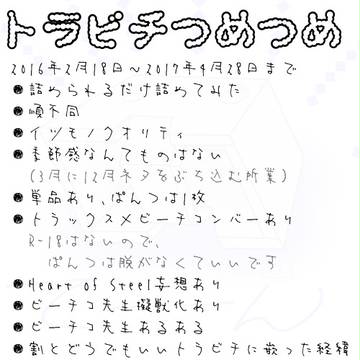 トラビチつめつめ
2016年2月18日～2017年4月28日まで
●詰められるだけ詰めてみた
●順不同
●イツモノクオリティ
●季節感なんてものはない
(3月に12月ネタをぶち込む所業)
●単品あり、ぱんつは1枚
●トラックス×ビーチコンバーあり
R-18はないので、
ぱんつは脱がなくていいです
●Heart of Steel妄想あり
●ビーチコ先生擬獣化あり
●ビーチコ先生あるある
●割とどうでもいいトラビチに嵌った経緯